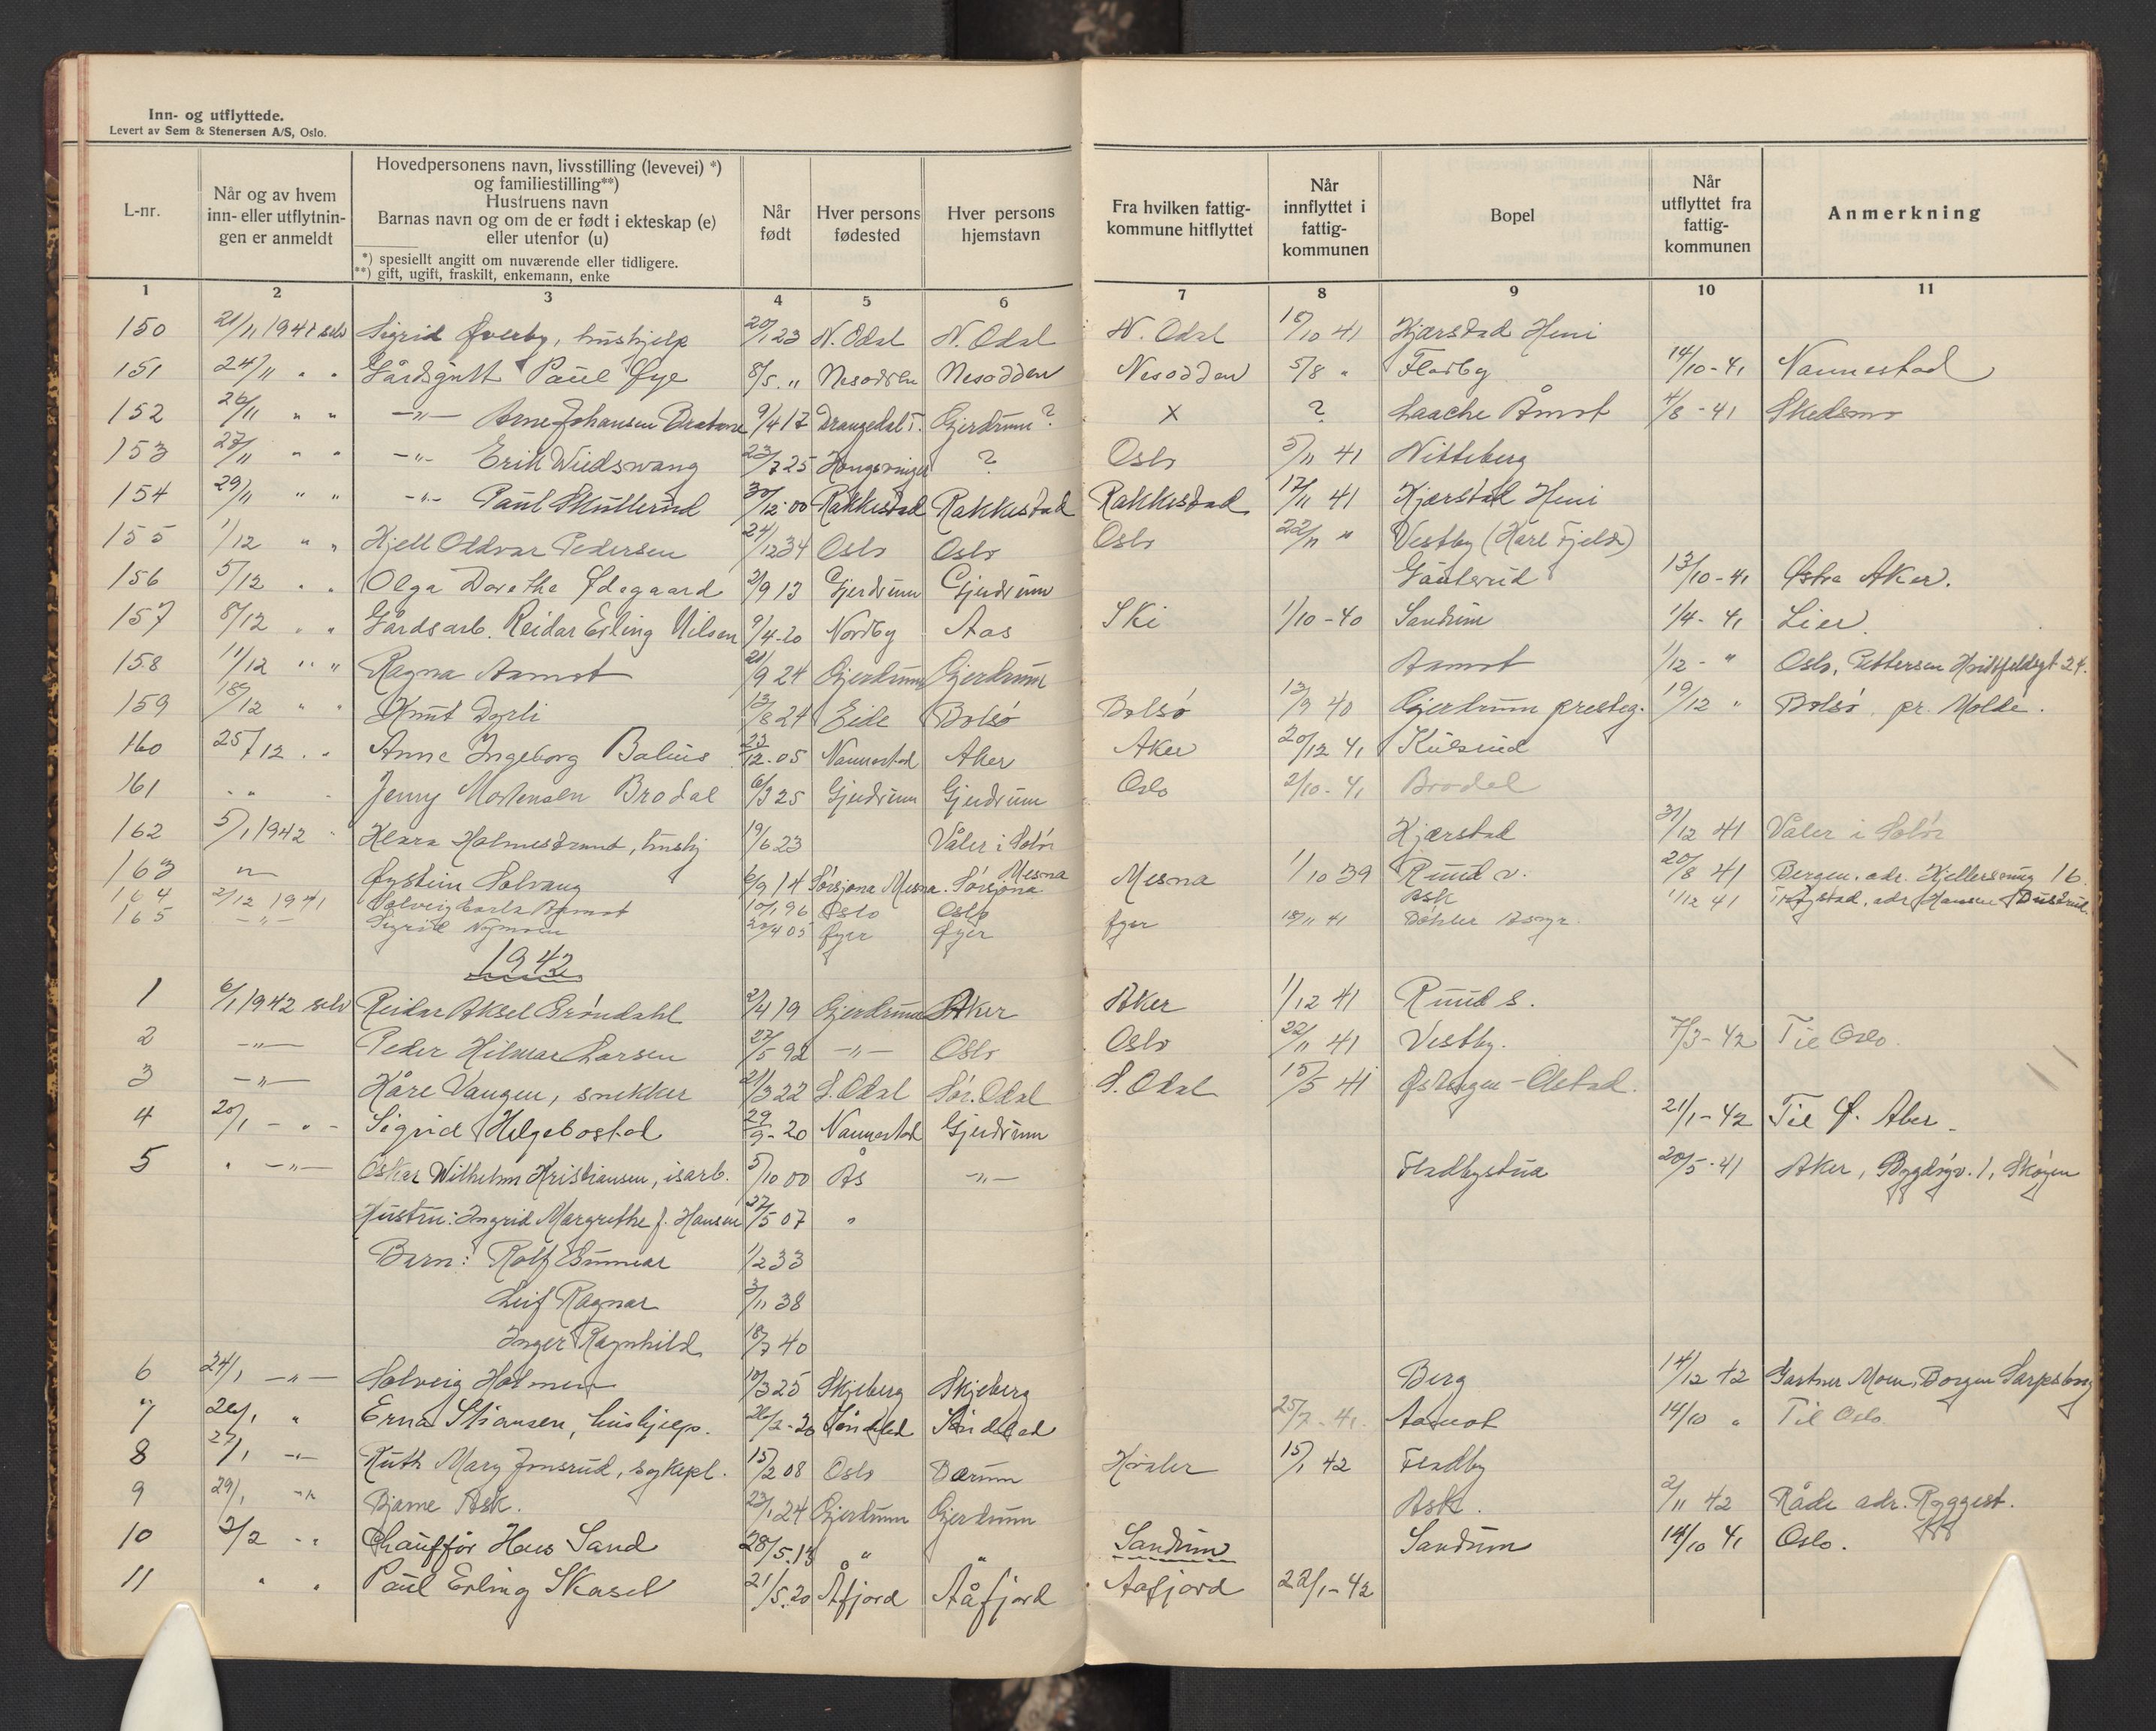 Inn- og utflyttede.
Levert av Sem & Stenersen A/S, Oslo.
L-nr.
Når og av hvem inn- eller utflytnin-gen er anmeldt
Hovedpersonens navn, livsstilling (levevei) *) og familiestilling**)
Hustruens navn
Barnas navn og om de er født i ekteskap (e) eller utenfor (u)
*) spesiellt angitt om nuværende eller tidligere.
**) gift, ugift, fraskilt, enkemann, enke
Når født
Hver persons fødested
Hver persons hjemstavn
Fra hvilken fattig-kommune hitflyttet
Når innflyttet i fattig-kommunen
Bopel
Når utflyttet fra fattig-kommunen
Anmerkning
1 2 3 4 5 6 7 8 9 10 11
150 21/11 1941 selv Sigrid Øverby, hushjelp 20/1 23 N. Odal N. Odal N. Odal 18/10 41 Kjærstad Heni
151 24/11 " " Gårdsgutt Paul Øye 8/5 " Nesodden Nesodden Nesodden 5/8 " Fladby 14/10-41 Nannestad
152 26/11 " " -"- Arne Johansen 9/4 17 Drangedal T. Gjerdrum? X ? Laache Åmot 4/8-41 Skedsmo
153 27/11 " " -"- Erik Wiedswang 23/7 25 Kongsvinger ? Oslo 5/11 41 Nitteberg
154 29/11 " " -"- Paul Skullerud 30/12-00 Rakkestad Rakkestad Rakkestad 17/11 41 Kjærstad Heni
155 1/12 " " Kjell Oddvar Pedersen 24/12 34 Oslo Oslo Oslo 22/11 " Vestby (Karl Fjeld)
156 5/12 " " Olga Dorothe Ødegaard 2/9 13 Gjerdrum Gjerdrum Gaulerud 13/10-41 Østre Aker.
157 8/12 " " Gårdsarb. Reidar Erling Nilsen 9/4-20 Nordby Aas Ski 1/10-40 Sandum 1/4-41 Lier
158 11/12 " " Ragna Aamot 21/9 24 Gjerdrum Gjerdrum Aamot 1/12-" Oslo, Pettersen Hvitfeldtsgt 24.
159 18/12 " " Knut Dyrli 13/8 24 Eide Bolsø Bolsø 13/9 40 Gjerdrum presteg. 19/12 " Bolsø pr. Molde.
160 25/12 " " Anne Ingeborg Balius 23/12-05 Nannestad Aker Aker 20/12 41 Kulsrud
161 " " Jenny Mortensen Brodal 6/3 25 Gjerdrum Gjerdrum Oslo 2/10-41 Brodal
162 5/1 1942 " Klara Holmestrand, hushj 19/6 23 Våler i Solør Kjærstad 31/12 41 Våler i Solør
163 " Øystein Solvang 6/9 14 Sørsjona Mesna. Sørsjona Mesna Mesna 1/10 39 Ruud v. 20/8 41 Bergen. adr. 16.
164 2/12 1941 Solveig Karla Aamot 10/1 96 Oslo Oslo Ask 1/12 41 adr. Hansen
165 -"- Sigrid Nyman 20/4 05 Øyer Øyer Øyer 18/11 41
1942
1 6/1 1942 selv Reidar Aksel Grøndahl 2/4 19 Gjerdrum Aker Aker 1/12 41 Ruud s.
2 -"- Peder Hilmar Larsen 27/5 92 -"- Oslo Oslo 22/11 41 Vestby. 7/3-42 Til Oslo.
3 -"- Kåre Vangen, snekker 21/3 22 S. Odal Sør. Odal S. Odal 15/5 41 Østengen-Olstad.
4 20/1 - " - Sigrid Helgebostad 29/9-20 Nannestad Gjerdrum 21/1-42 Til Ø. Aker.
5 " -"- Oskar Wilhelm Kristiansen, isarb. 5/10 00 Ås -"- Fladbystua 20/5-41 Aker, Bygdøyv. 1, Skøyen
Hustru: Ingrid Margrethe f. Hansen 27/5 07 "
Barn: Rolf Gunnar 1/2 33
Leif Ragnar 3/11 38
Inger Ragnhild 18/7 40
6 24/1 -"- Solveig Holmen 10/3 25 Skjeberg Skjeberg Berg 14/12 42 Gartner Moen, Borgen Sarpsborg
7 26/1 " Erna Stiansen, hushjelp. 26/2-20 Søndeled Søndeled 25/7-41. Aamot 14/10 " Til Oslo.
8 27/1 -"- Ruth Mary Jonsrud, sykepl. 15/2 08 Oslo Bærum Hvaler 15/1 42 Fladby
9 29/1 -"- Bjarne Ask. 23/1 24 Gjerdrum Gjerdrum Ask. 2/11 42 Råde adr. Ryggest.
10 3/2 -"- Chauffør Hans Sand 28/5.18 " " Sandum Sandum 14/10 41 Oslo.
11 " " Paul Erling Skasel 21/5.20 Åfjord Aåfjord Aafjord 22/1-42